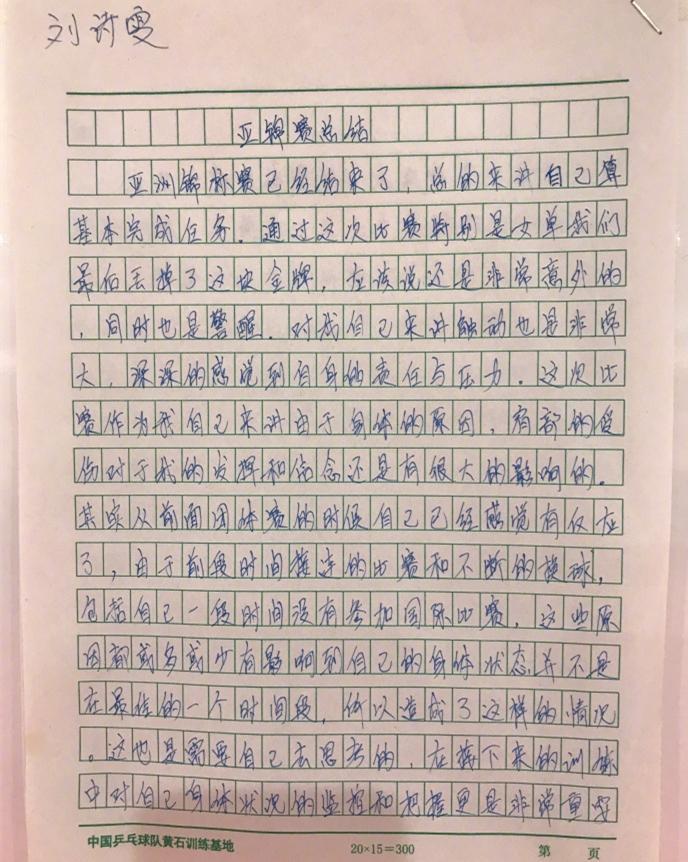 刘诗雯
亚锦赛总结
亚洲锦标赛已经结束了，总的来讲自己算
基本完成任务。通过这次比赛特别是女单我们
最后丢掉了这块金牌，应该说还是非常意外的
，同时也是警醒。对我自己来讲触动也是非常
大，深深的感觉到自身的责任与压力。这次比
赛作为我自己来讲由于身体的原因，肩部的受
伤对于我的发挥和信念还是有很大的影响的。
其实从前面团体赛的时候自己已经感觉有反应
了，由于前段时间接连的比赛和不断的换球，
包括自己一段时间没有参加国际比赛，这些原
因都或多或少有影响到自己的身体状态并不是
在最佳的一个时间段，所以造成了这样的情况
。这也是需要自己去思考的，在接下来的训练
中对自己身体状况的监控和把握更是非常重要
中国乒乓球队黄石训练基地
20×15=300
第 页